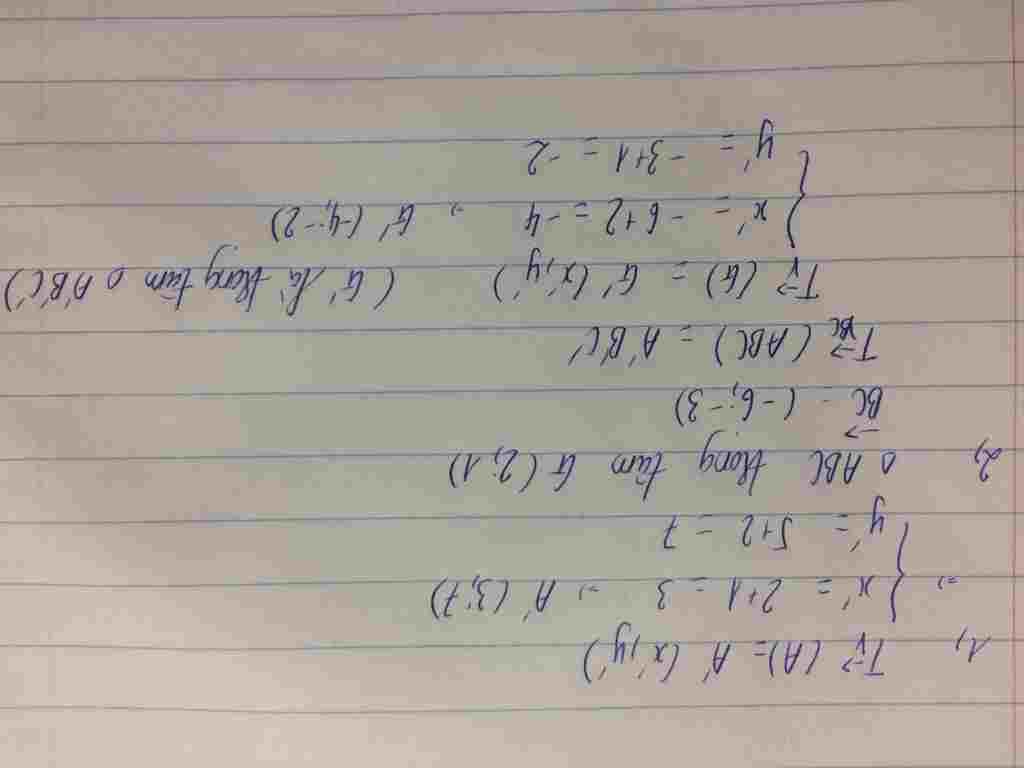 1, T_v⃗ (A) = A' (x', y')
=> { x' = 2+1 = 3 => A' (3;7)
y' = 5+2 = 7
2, Δ ABC trọng tâm G (2;1)
BC⃗ = (-6;-3)
T_BC⃗ (ABC) = A'B'C'
T_v⃗ (G) = G' (x', y') (G' là trọng tâm Δ A'B'C')
{ x' = -6+2 = -4 => G' (-4;-2)
y' = -3+1 = -2